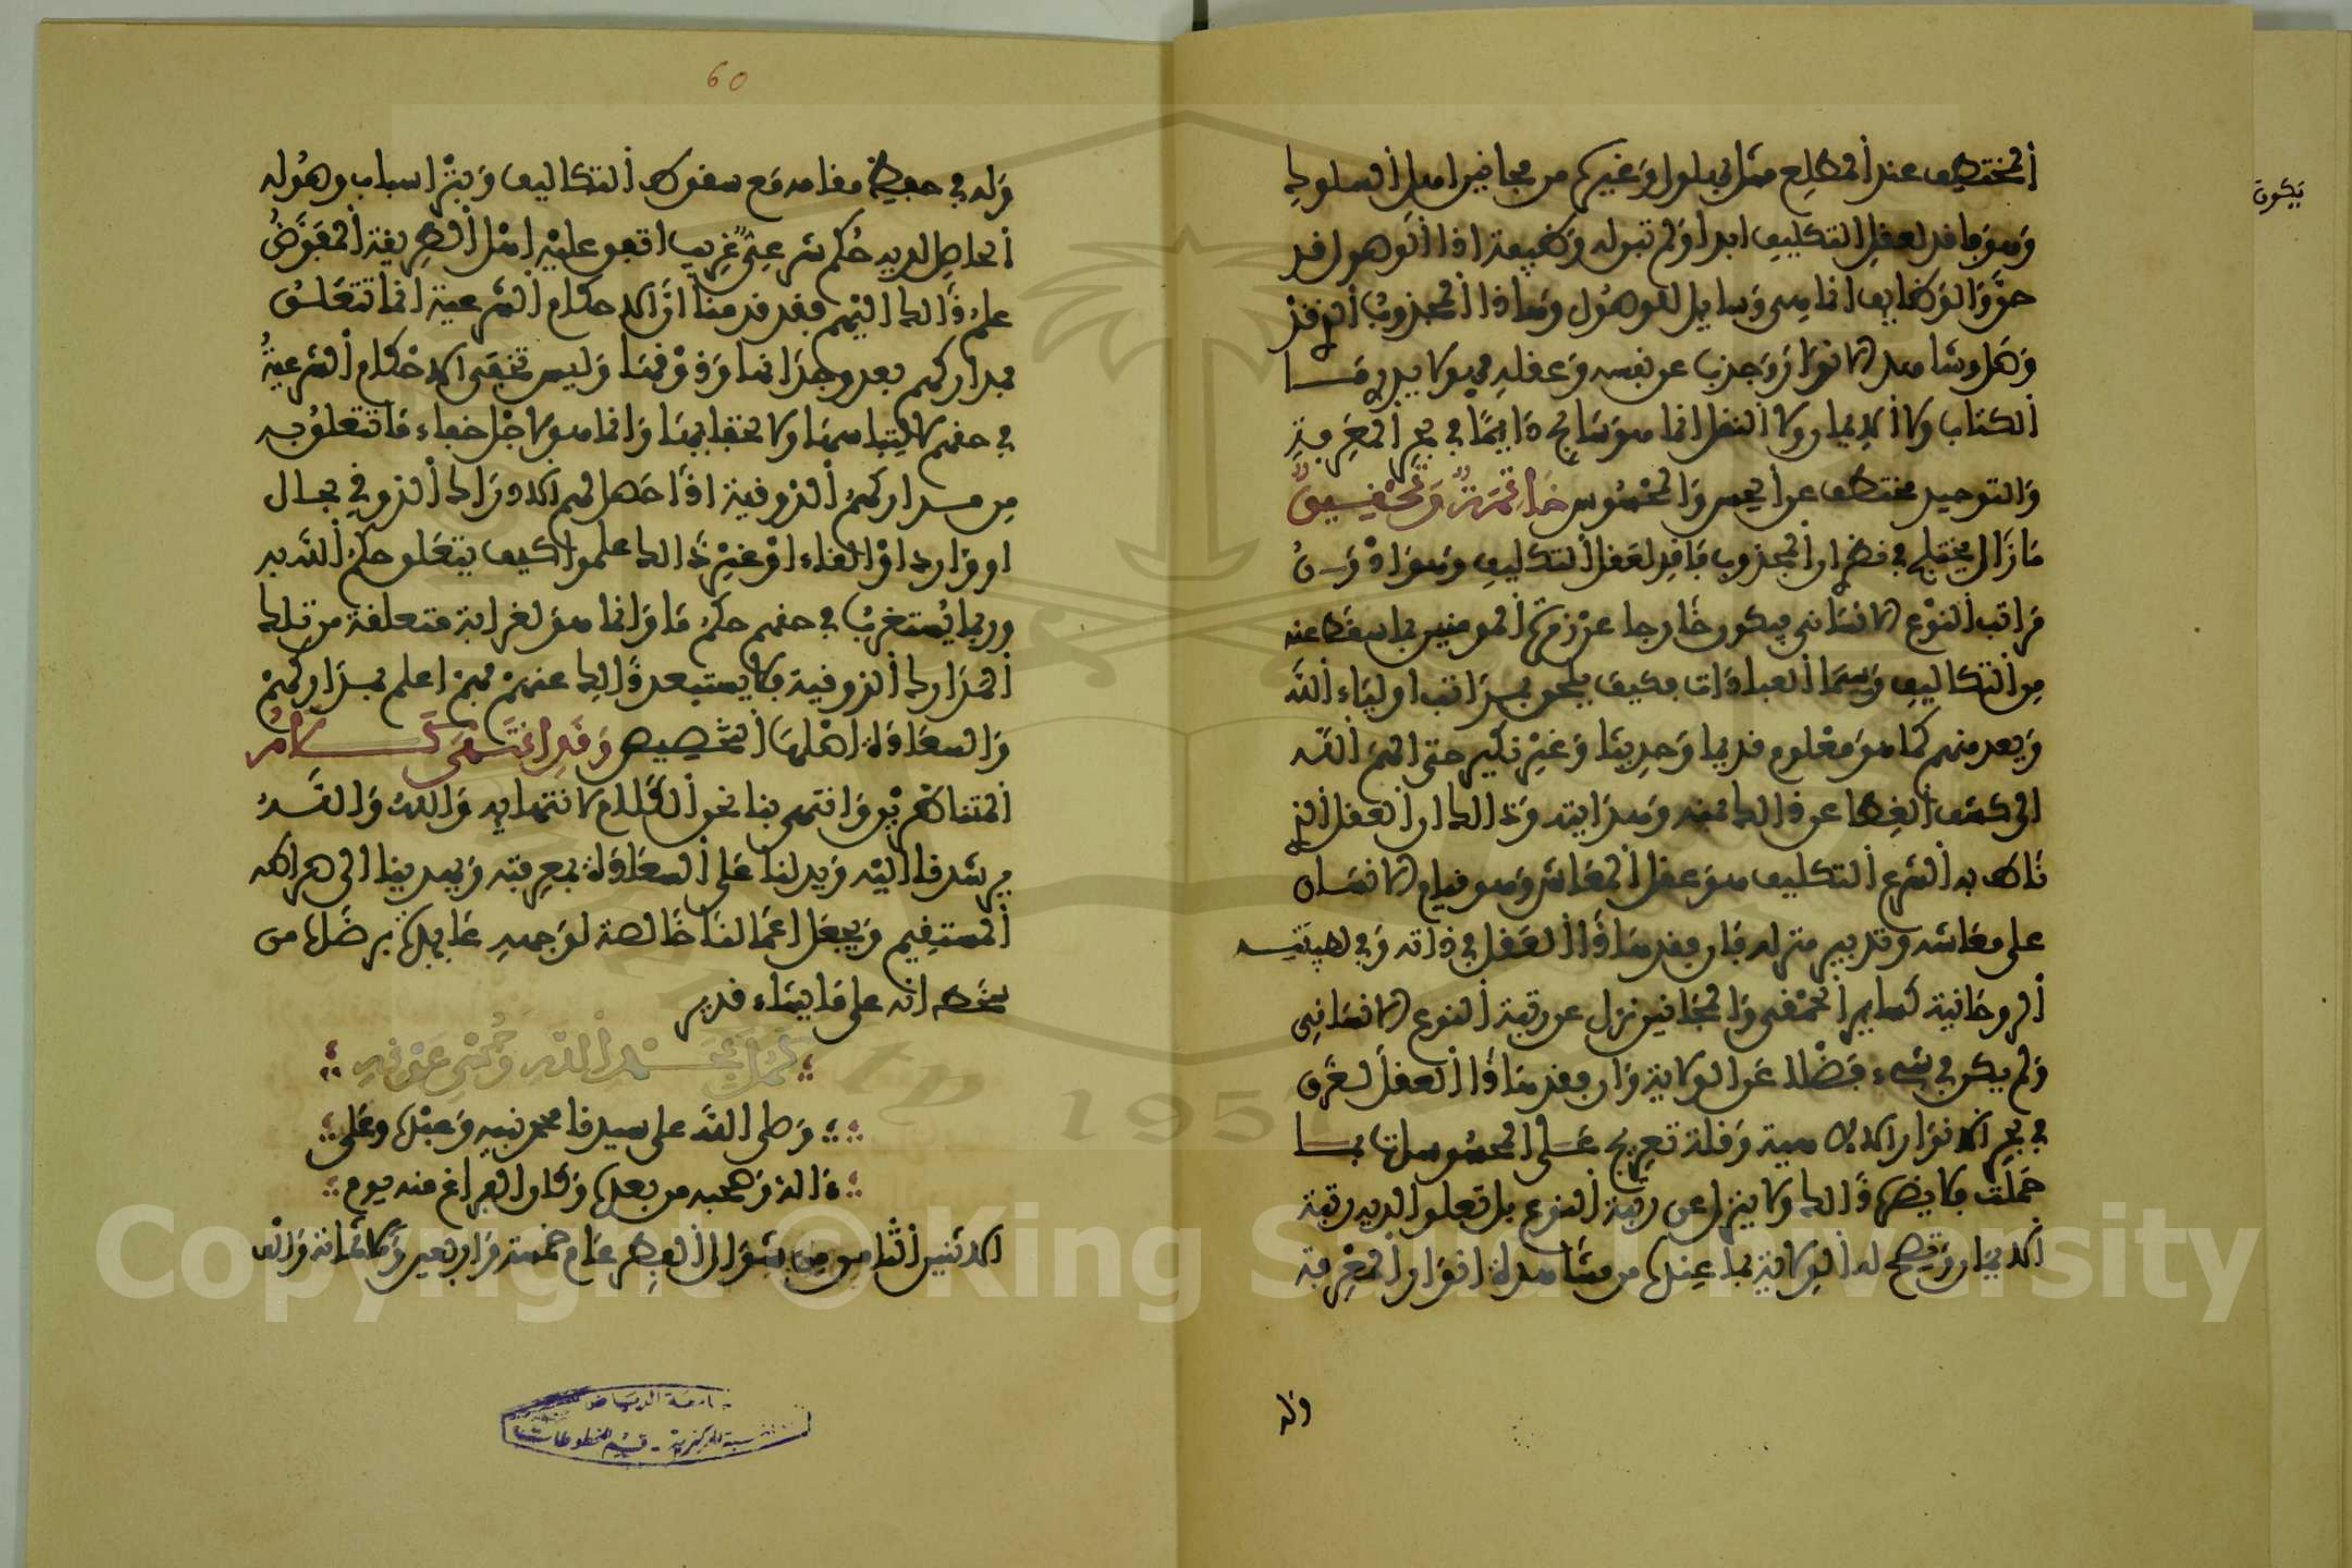 المختطف عند المطلع مثل بهلول وغيره من مجانين اهل السلوك
وهو فاقد لعقل التكليف ابدا ولم تبق له وظيفة اذ الوصول قد
حق والوظايف انما هي وسايل للوصول وهاذا المجذوب الذي قد
وصل وشاهد الانوار وجذب عن نفسه وعقله فهو لا يدري ما
الكتاب ولا الايمان ولا النقل انما هو سابح دايما في بحر المعرفة
والتوحيد مختطف عن الحس والمحسوس خاتمة وتحقيق
ما زال يختلج في نظر ان المجذوب فاقد لعقل التكليف وهو ادون
مراتب النوع الانساني فيكون خارجا عن زمرة المومنين بما سقط عنه
من التكاليف وسيما العبادات فكيف يلحق بمراتب اولياء الله
ويعد منهم كما هو معلوم قديما وحديثا وغير نكير حتى الهم الله
الى كشف الغطا عن ذالك بمنه وهدايته وذالك ان العقل الذي
ناط به الشرع التكليف هو عقل المعاش وهو قيام الانسان
على معاشه وتدبير منزله فان فقد هاذا العقل في ذاته وفي لطيفته
الروحانية كساير الحمقى والمجانين نزل عن رتبة النوع الانساني
ولم يكن في شيء فضلا عن الولاية وان فقد هاذا العقل لغرق
في بحر الانوار الالاهية وقلة تعريج على المحسوسات بما
حملت فلا يضره ذالك ولا ينزل عن رتبة النوع بل تعلو لديه رتبة
الايمان وتصح له الولاية بما عنده من مشاهدة انوار المعرفة
وله
يكون
60
وله في حفظ مقامه مع سقوط التكاليف وبتر اسباب وصوله
الحاصل لديه حكم شرعي غريب اتفق عليه اهل الطريقة المفوض
علم ذالك اليهم فقد قدمنا ان الاحكام الشرعية انما تتعلق
بمداركهم بعد وجدانها وذوقها وليس تخفى الاحكام الشرعية
في حقهم لالتباسها ولا لخفايها وانما هو لاجل خفاء ما تتعلق به
من مداركهم الذوقية اذا حصل لهم الادراك الذوقي بحال
او وارد او القاء او غير ذالك علموا كيف يتعلق حكم الله به
وربما يستغرب في حقهم حكم ما وانما هو لغرابة متعلقه من تلك
المدارك الذوقية فلا يستبعد ذالك عنهم فهم اعلم بمداركهم
والسعادة اهلها التخصيص وقد انتهى كلام
المتناظرين وانتهى بنا نحو الكلام لانتهايه والله والله
يرشدنا اليه ويدلنا على السعادة بمعرفته ويهدينا الى صراطه
المستقيم ويجعل اعمالنا خالصة لوجهه عايذة برضاه من
سخطه انه على ما يشاء قدير
كمل بحمد الله وحسن عونه
وصلى الله على سيدنا محمد نبيه وعبده وعلى
ءاله وصحبه من بعده وكان الفراغ منه يوم
الاثنين الثامن من شوال الفطر عام خمسة واربعين وثلاثمائة والف
جامعة الرياض
المكتبة المركزية - قسم المخطوطات
Copyright © King Saud University
1957